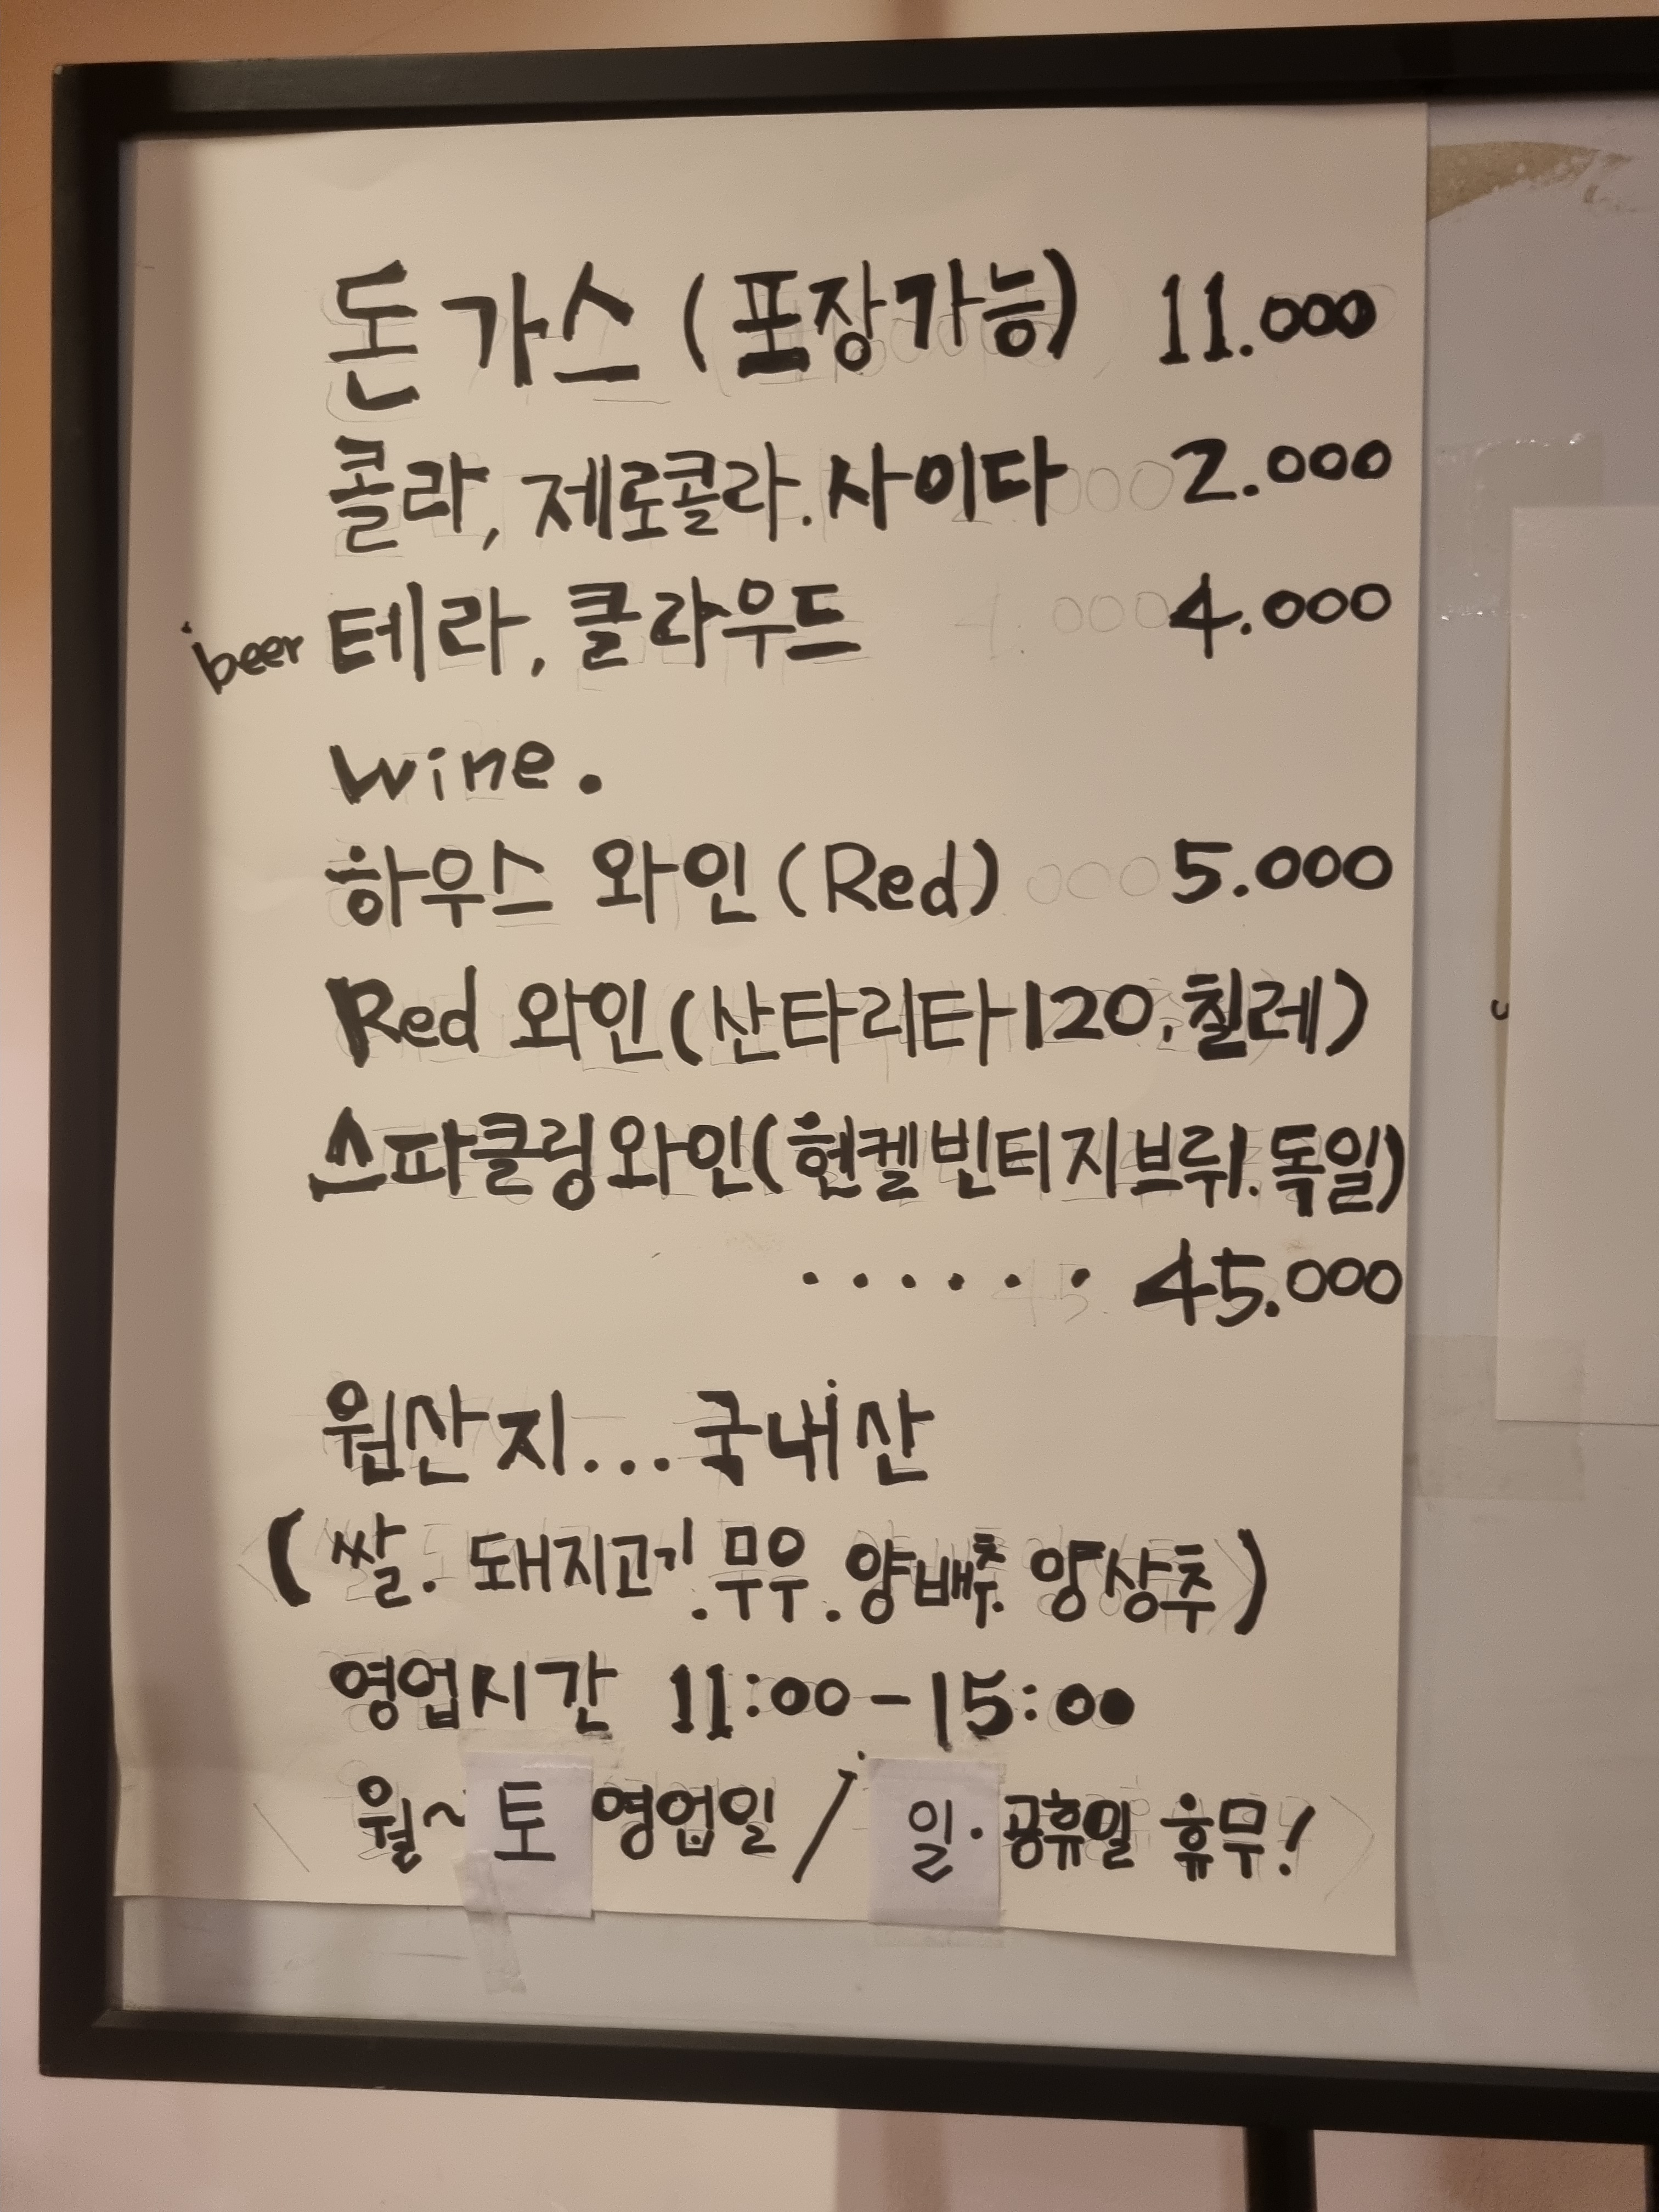 돈가스 (포장가능) 11.000
콜라, 제로콜라. 사이다 2.000
beer 테라, 클라우드 4.000
wine.
하우스 와인 (Red) 5.000
Red 와인 (산타리타 120. 칠레)
스파클링 와인 (헨켈 빈티지 브뤼. 독일)
...... 45.000
원산지... 국내산
(쌀. 돼지고기. 무우. 양배추. 양상추)
영업시간 11:00-15:00
월~토 영업일 / 일. 공휴일 휴무!